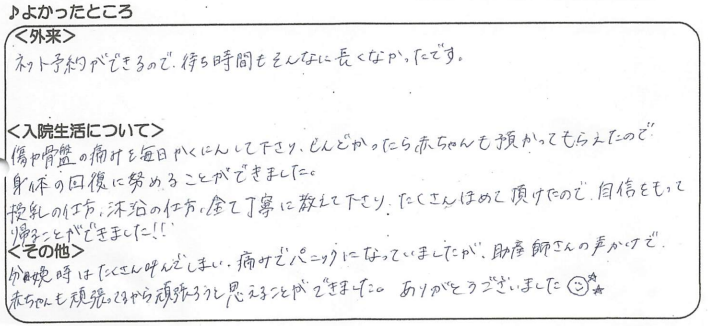 ♪よかったところ
<外来>
ネット予約ができるので、待ち時間もそんなに長くなかったです。
<入院生活について>
傷や骨盤の痛みを毎日かくにんして下さり、しんどかったら赤ちゃんも預かってもらえたので
身体の回復に努めることができました。
授乳の仕方、沐浴の仕方、全て丁寧に教えて下さり、たくさんほめて頂けたので、自信をもって
帰ることができました!!
<その他>
分娩時はたくさん叫んでしまい、痛みでパニックになっていましたが、助産師さんの声かけで、
赤ちゃんも頑張ってるから頑張ろうと思えることができました。ありがとうございました